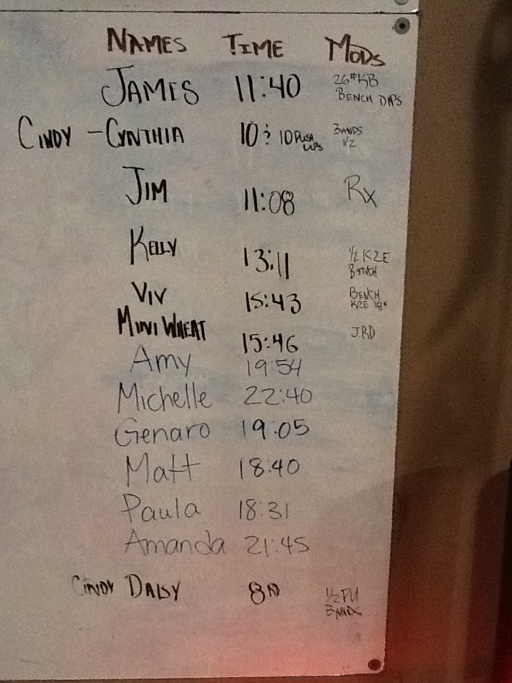 NAMES TIME MODS
JAMES 11:40 26#KB
BENCH DIPS
CINDY - CYNTHIA 10 : 10 PUSH UPS BANDS
1/2
JIM 11:08 Rx
KELLY 13:11 1/2 K2E
BENCH
VIV 15:43 BENCH
K2E 18#
MINI WHEAT 15:46 JRD
Amy 19:54
Michelle 22:40
Genaro 19:05
Matt 18:40
Paula 18:31
Amanda 21:45
CINDY DAISY 8RD 1/2 PU
BANDS